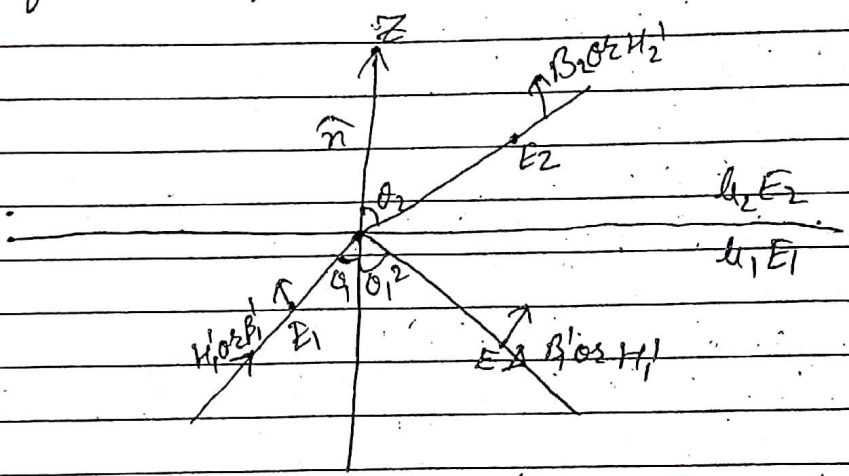 Z
B₂ or H₂'
n̂
E2
θ₂
μ₂ E₂
μ₁ E₁
θ₁ θ₁²
H₁' or B₁'
E₁
E B₁' or H₁'